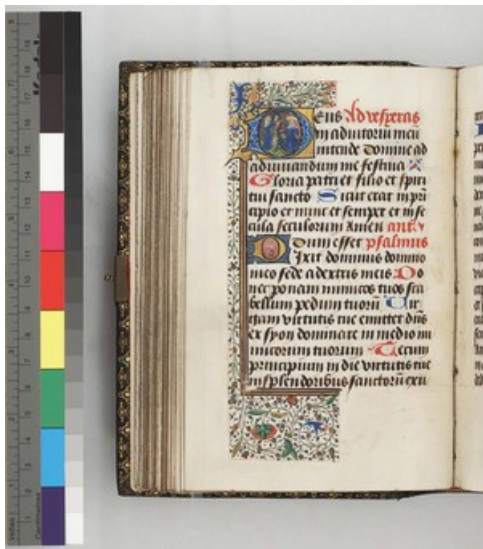 Deus Ad vesperas
in adiutorium meū
intende Domine ad
adiuuandum me festina
Gloria patri et filio et spiri
tui sancto Sicut erat in pri
cipio et nunc et semper et in se
cula seculorum Amen ant.
Dum esset psalmus
Ixit dominus domino
meo sede a dextris meis Do
nec ponam inimicos tuos sca
bellum pedum tuorū Uir
gam virtutis tue emittet dñs
ex syon dominare in medio ini
micorum tuorum Tecum
principium in die virtutis tue
in splendoribus sanctorū exu
Kodak
Inches
Centimetres